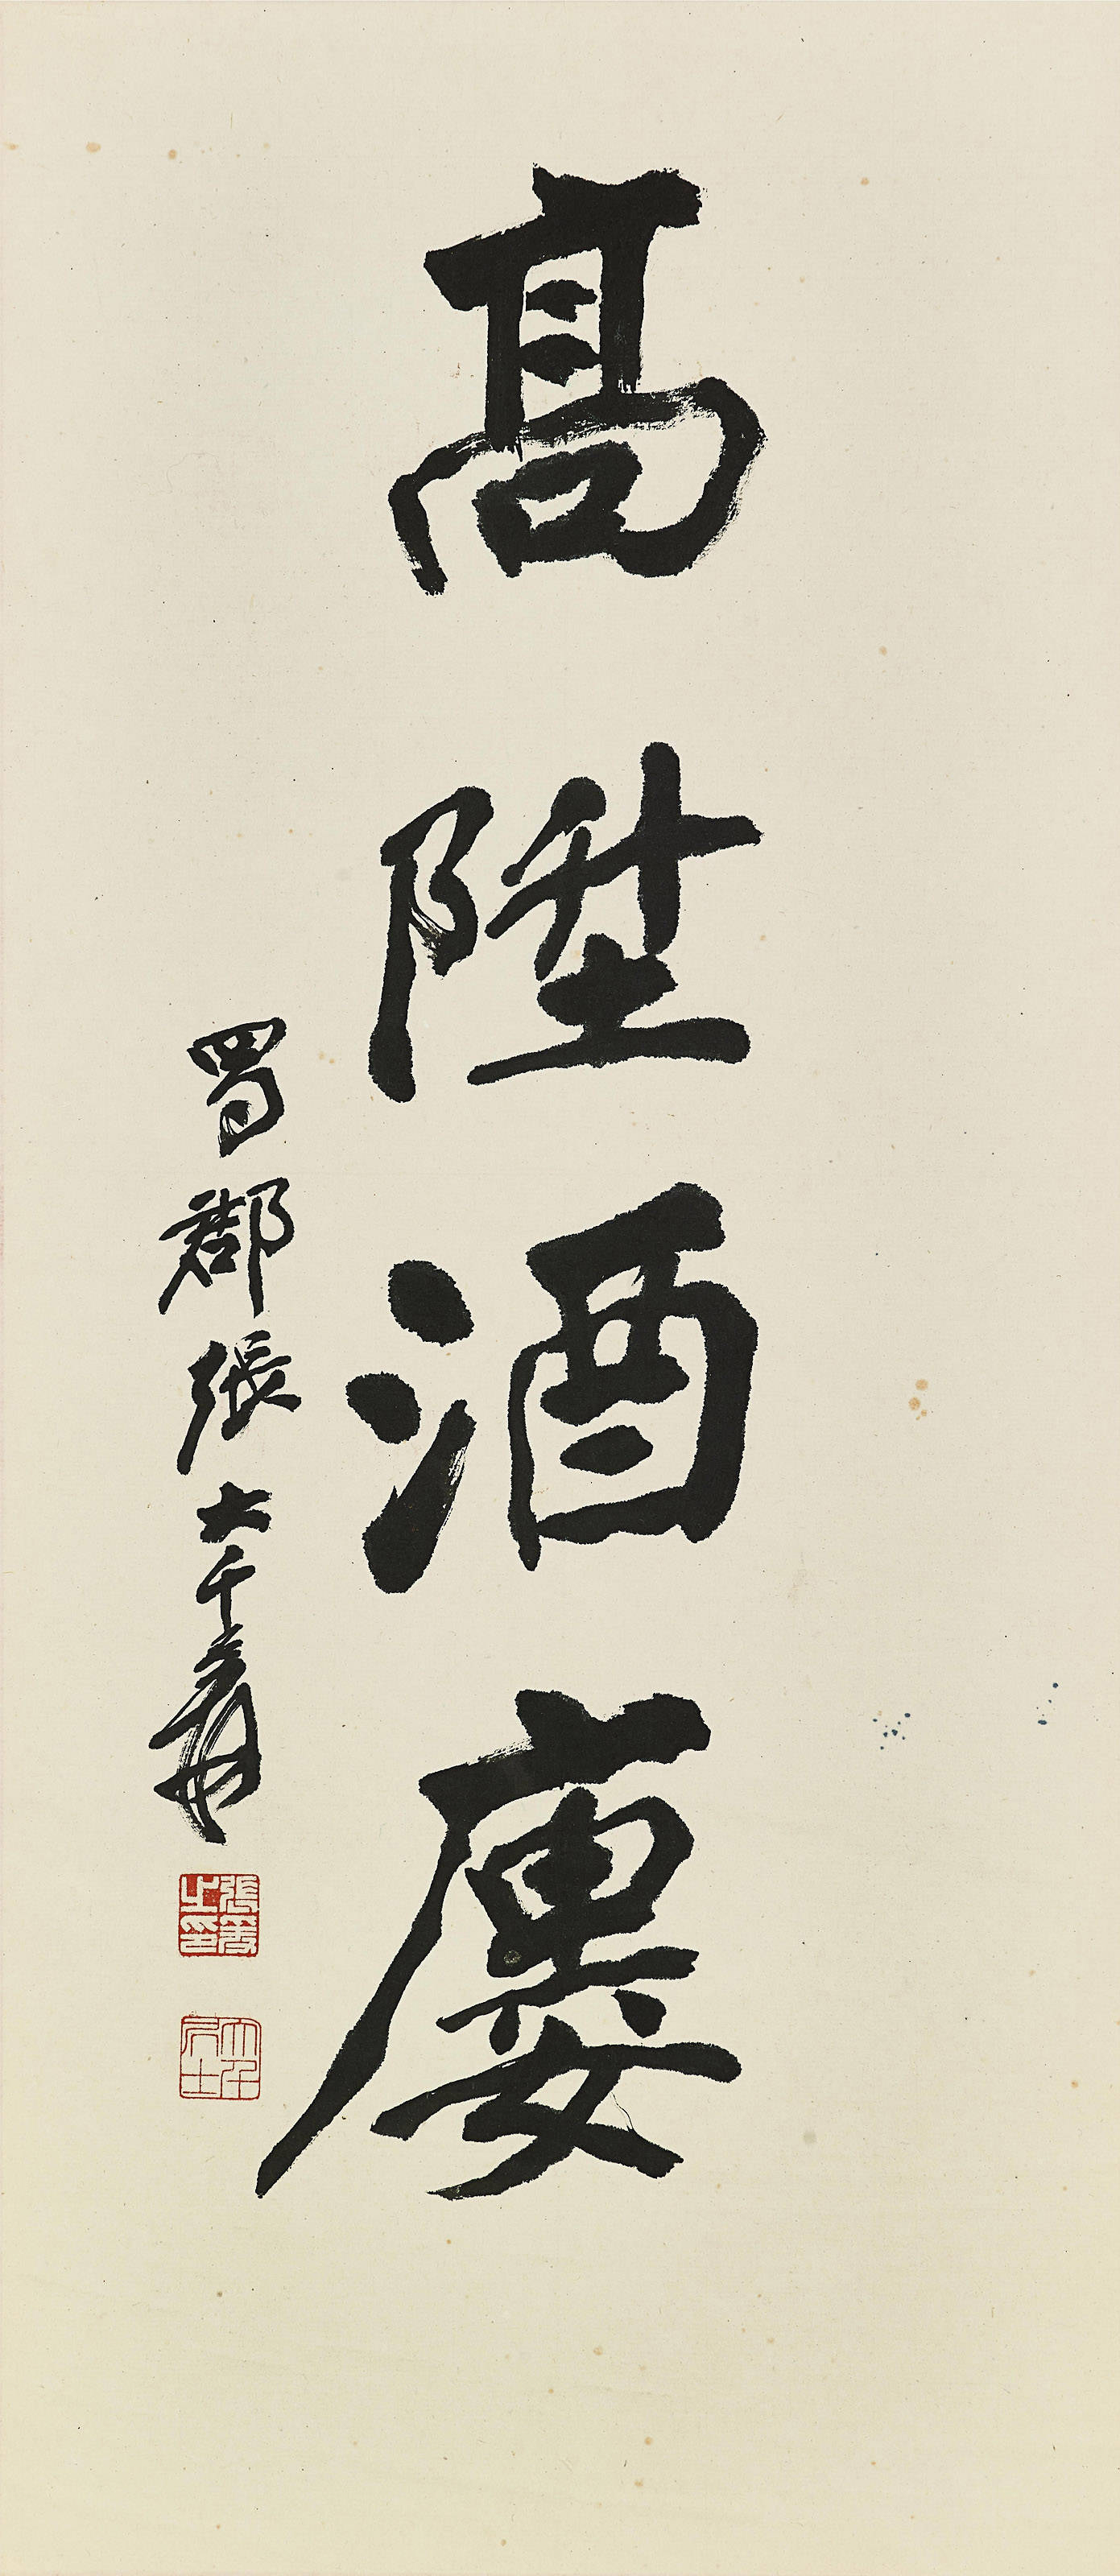 高陞酒廔
蜀郡張大千爰
張爰之印
大千居士